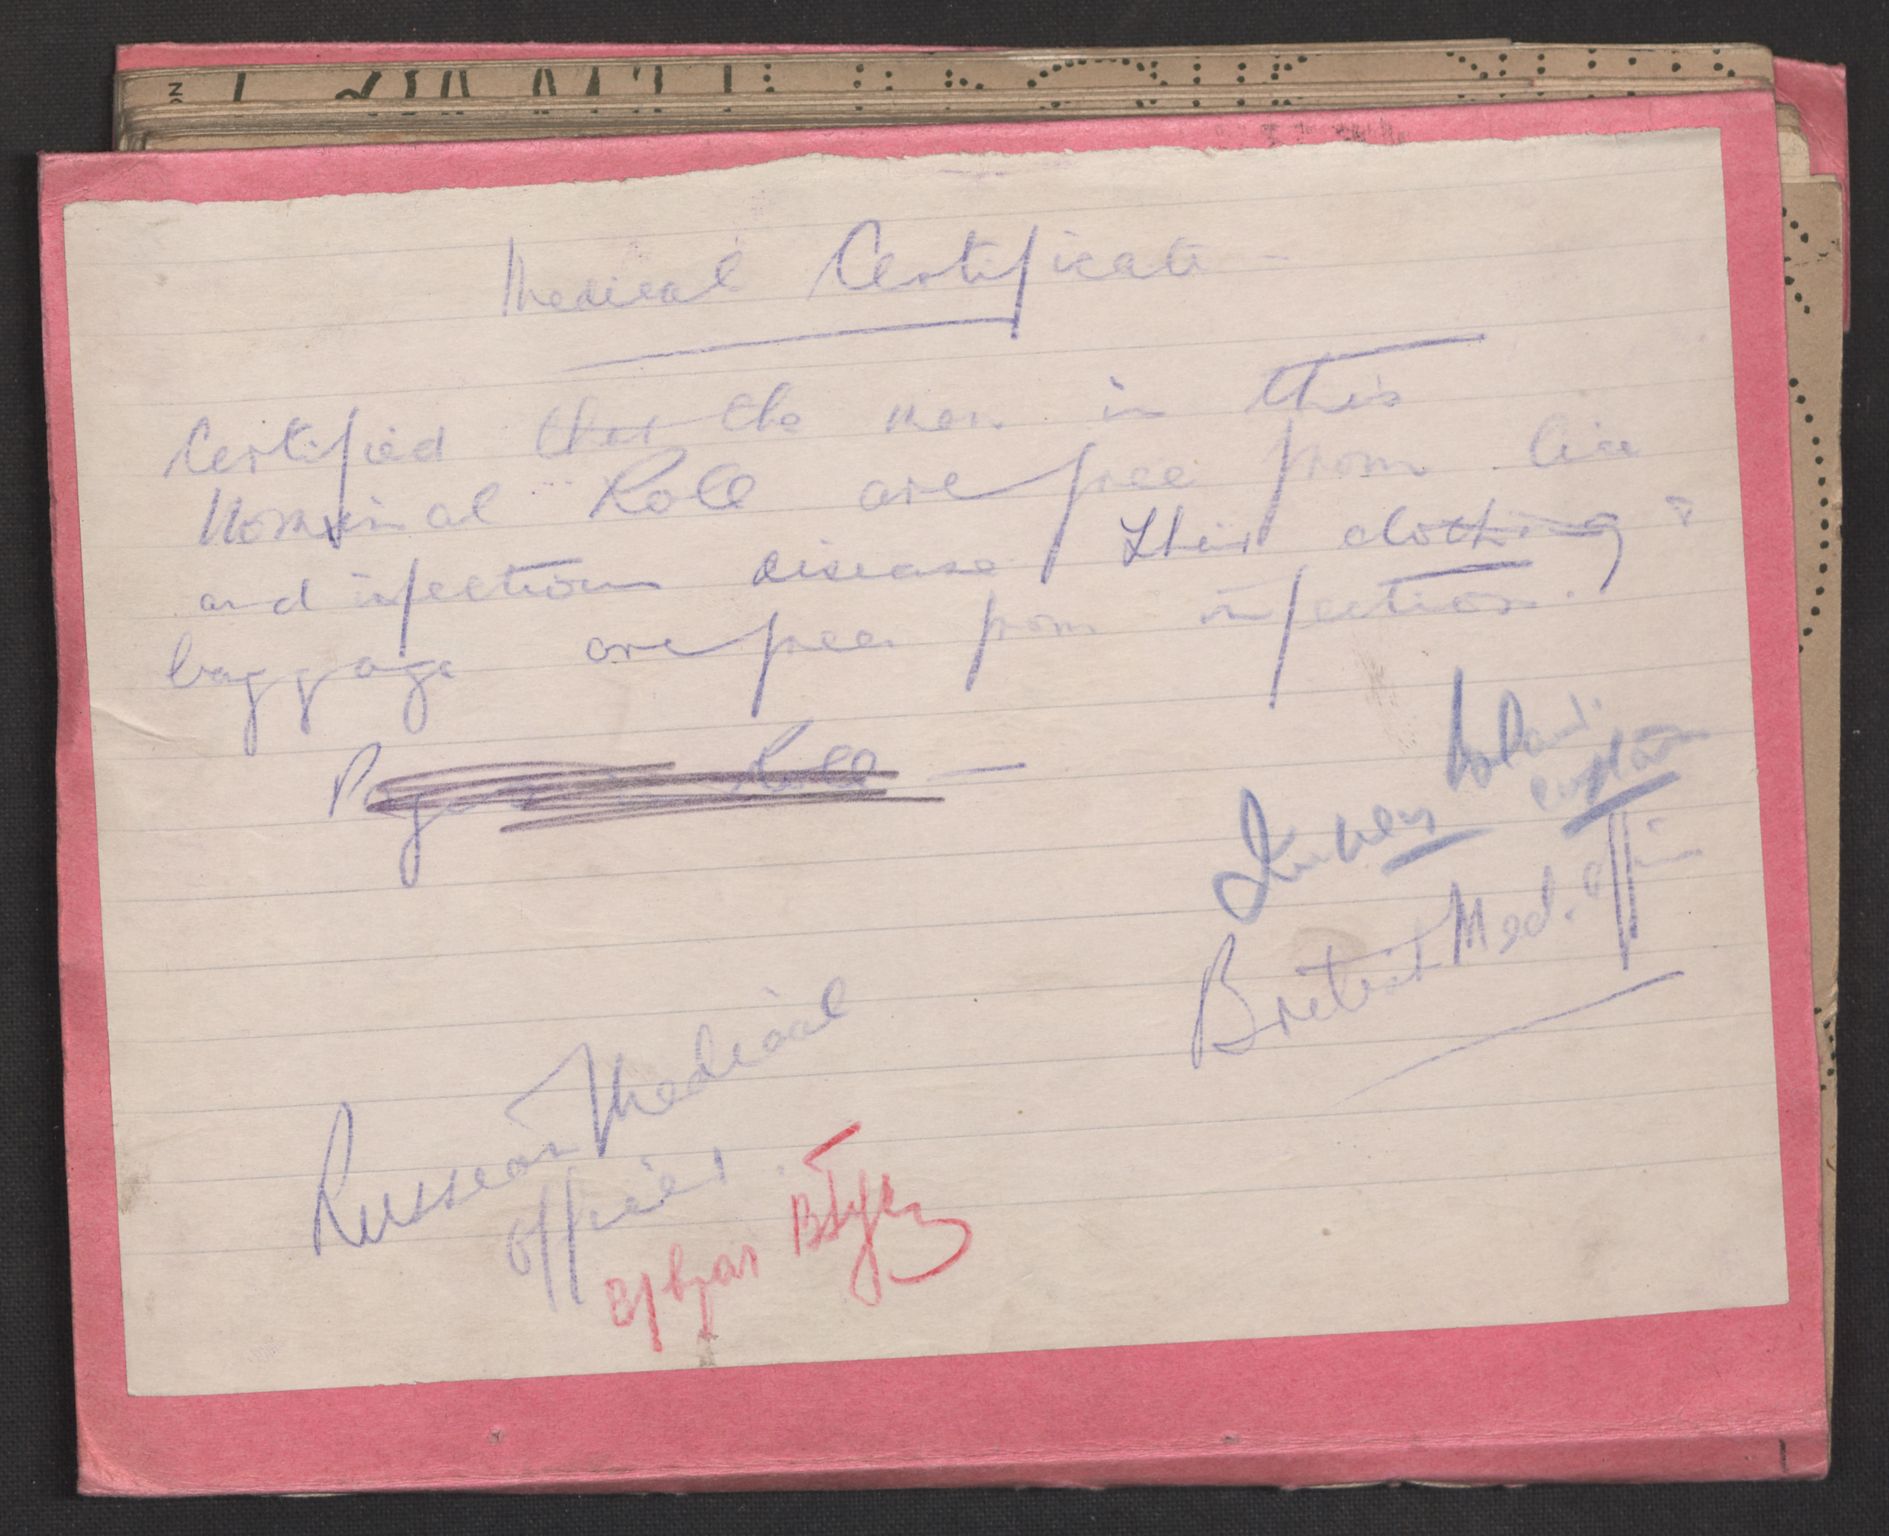 Medical Certificate -
Certified that the men in this
Nominal Roll are free from lice
and infectious disease Their clothing &
baggage are free from infection.
Roll -
captain
British Med. Offic
Russian Medical
Officer.